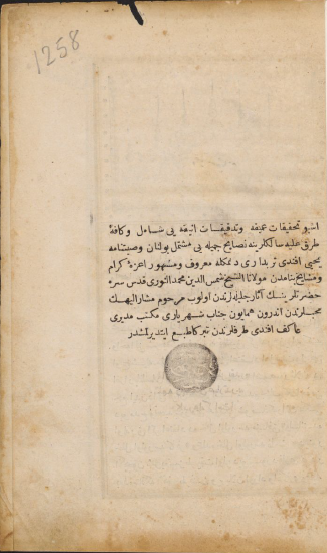 1258
اشبو تحقيقات عميقه وتدقيقات انيقه يى شامل وكافهٔ
طرق عليه سالكلرينه نصايح جميله يى مشتمل بولنان وصيتنامه
يحيى افندى تربدارى ديمكله معروف ومشهور اعزهٔ كرام
ومشايخ عظامدن مولانا الشيخ شمس الدين محمد النورى قدس سره
حضرتلرينك آثار جليله لرندن اولوب مرحوم مشار اليهك
محبلرندن اندرون همايون جناب شهريارى مكتب مديرى
عاكف افندى طرفلرندن تبركا طبع ايتديرلمشدر